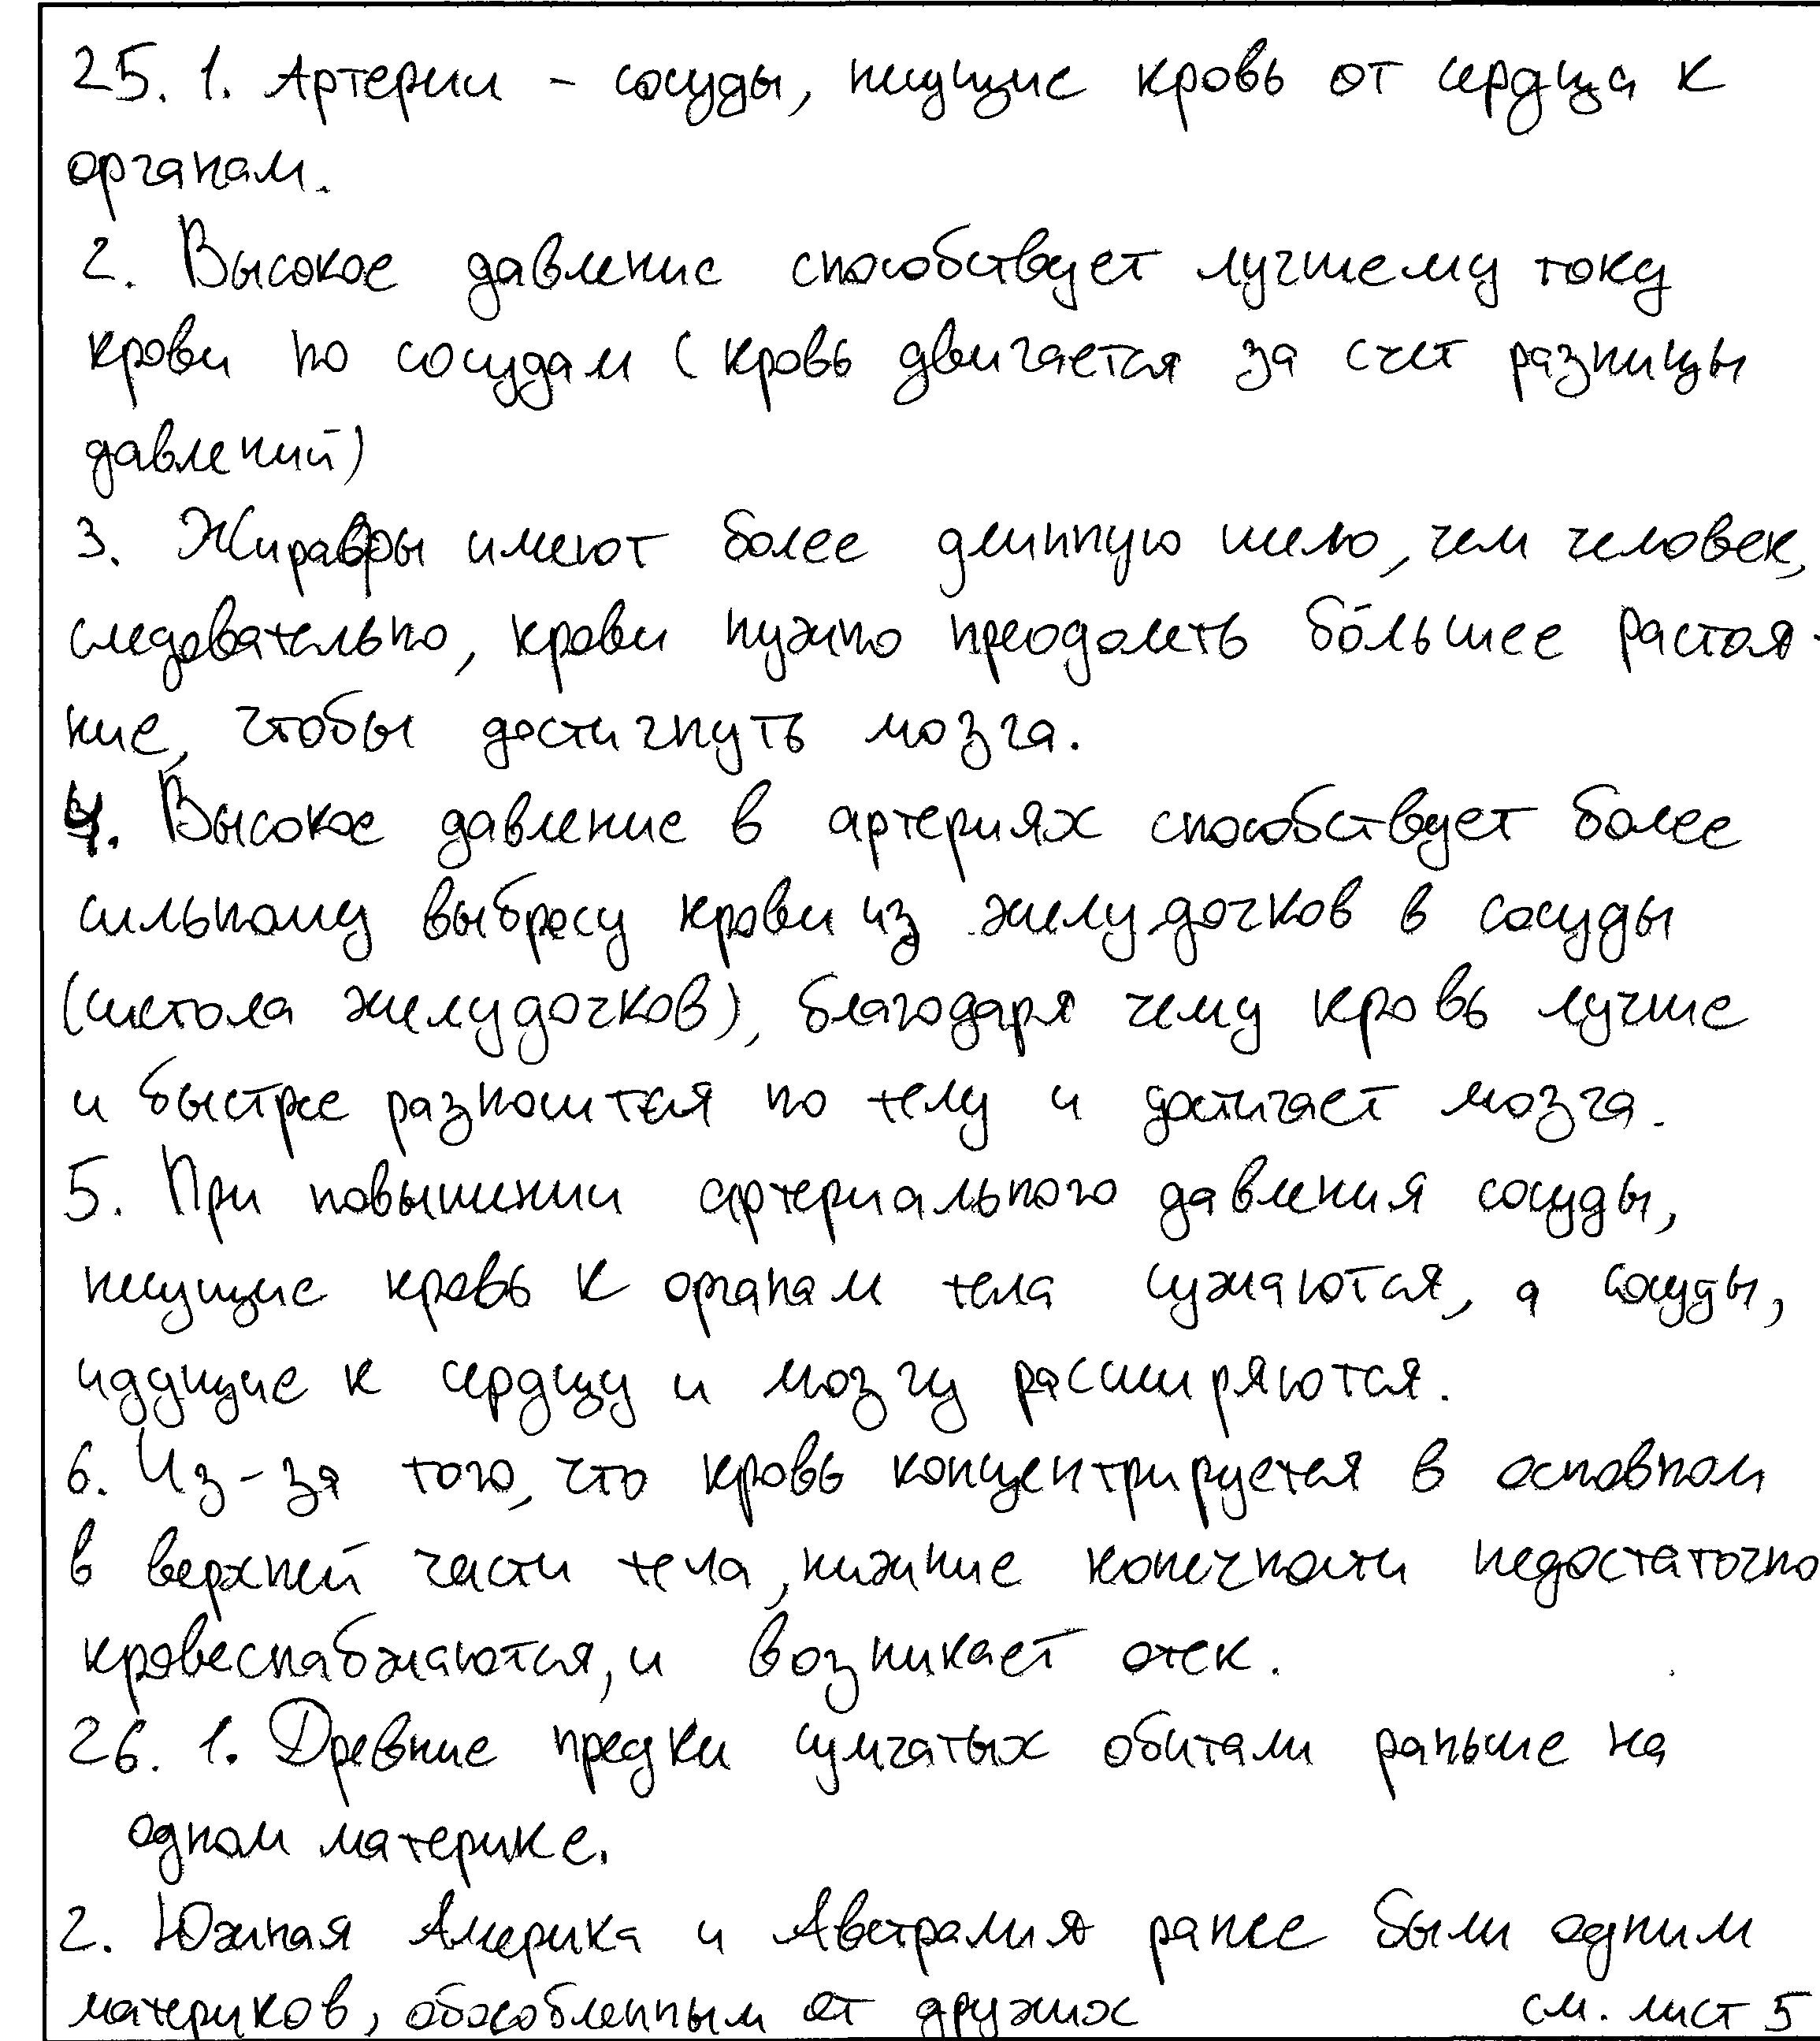 25. 1. Артерии - сосуды, несущие кровь от сердца к
органам.
2. Высокое давление способствует лучшему току
крови по сосудам (кровь двигается за счет разницы
давлений)
3. Жирафы имеют более длинную шею, чем человек,
следовательно, крови нужно преодолеть бо́льшее растоя-
ние, чтобы достигнуть мозга.
4. Высокое давление в артериях способствует более
сильному выбросу крови из желудочков в сосуды
(систола желудочков), благодаря чему кровь лучше
и быстрее разносится по телу и достигает мозга.
5. При повышении артериального давления сосуды,
несущие кровь к органам тела сужаются, а сосуды,
идущие к сердцу и мозгу расширяются.
6. Из-за того, что кровь концентрируется в основном
в верхней части тела, нижние конечности недостаточно
кровеснабжаются, и возникает отек.
26. 1. Древние предки сумчатых обитали раньше на
одном материке.
2. Южная Америка и Австралия ранее были одним
материков, обособленным от дружих
см. лист 5